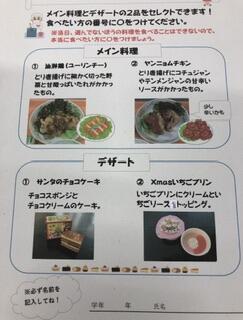 メイン料理とデザートの2品をセレクトできます！
食べたい方の番号に〇をつけてください。
※当日、選んでないほうの料理を食べることはできないので、
本当に食べたい方に〇をつけましょう。
メイン料理
① 油淋鶏（ユーリンチー）
とり唐揚げに細かく切った野
菜と甘酸っぱいたれがかかっ
たもの。
② ヤンニョムチキン
とり唐揚げにコチュジャン
やテンメンジャンの甘辛い
ソースがかかったもの。
少し
辛いかも
デザート
① サンタのチョコケーキ
チョコスポンジと
チョコクリームのケーキ。
② Xmasいちごプリン
いちごプリンにクリームとい
ちごソーストッピング。
※必ず名前を
記入してね！
学年 年 氏名